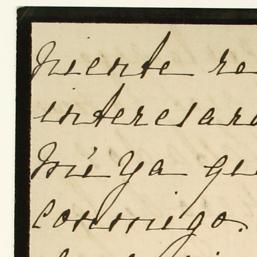 niente re
interesara
mí ya qu
conmigo.